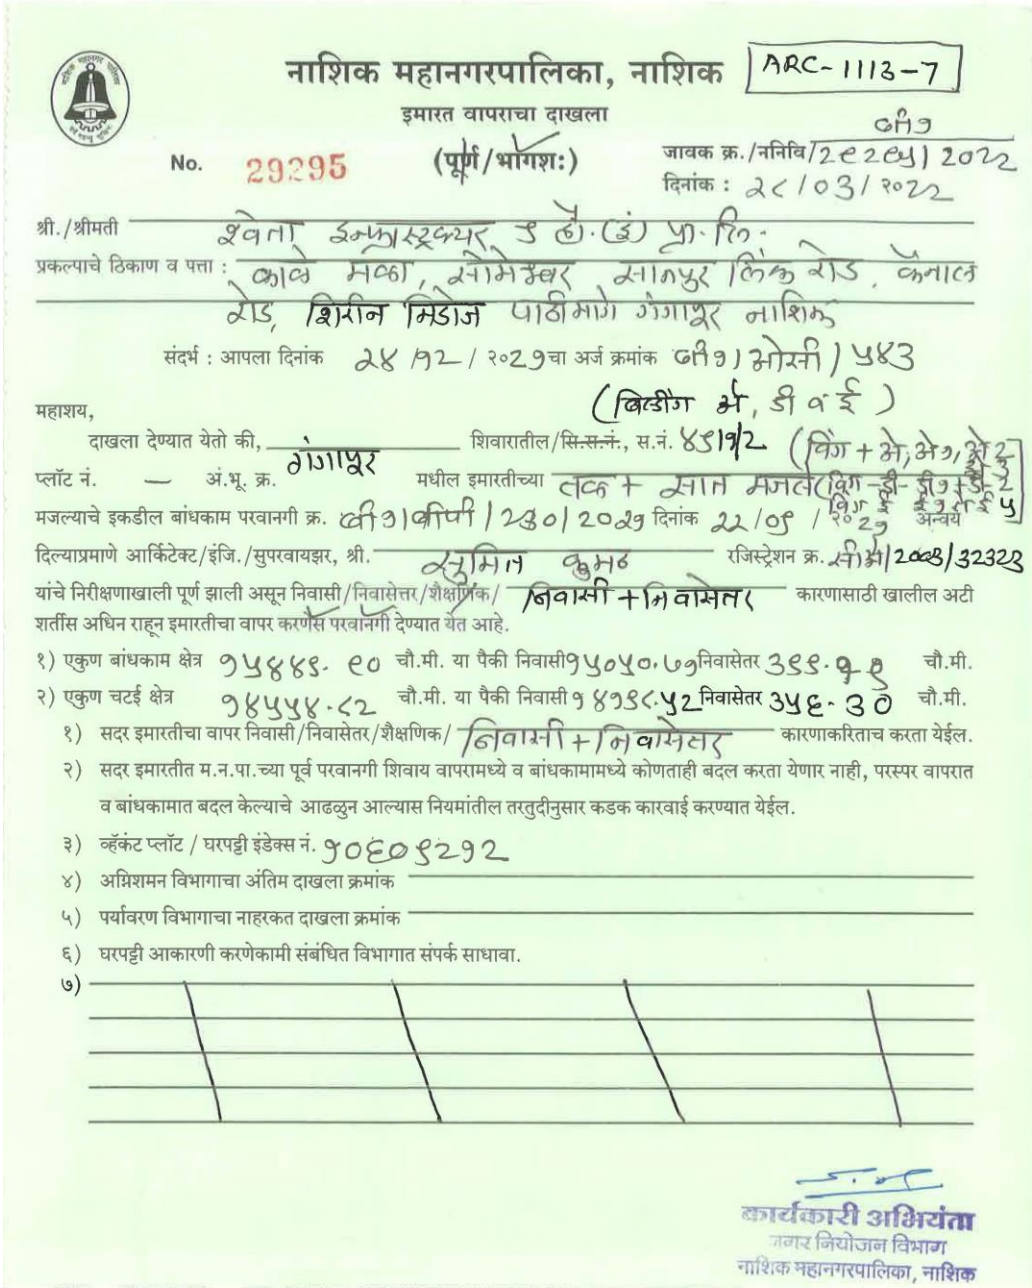 नाशिक महानगरपालिका, नाशिक
ARC-1113-7
इमारत वापराचा दाखला
(पूर्ण/भागशः)
No. 29295
जावक क्र./ननिवि/ / 2022
दिनांक : २८/०३/२०२२
श्री./श्रीमती श्वेता इन्फ्रास्ट्रक्चर हौ.(इं) प्रा. लि.
प्रकल्पाचे ठिकाण व पत्ता : काळे मळा, सोमेश्वर सातपुर लिंक रोड, कॅनाल
रोड, शिरीन मिडोज पाठीमागे गंगापूर नाशिक
संदर्भ : आपला दिनांक २४/१२/२०२१चा अर्ज क्रमांक ओसी/५४३
महाशय,
(बिल्डींग अे, डी व ई)
दाखला देण्यात येतो की, गंगापूर शिवारातील/सि.स.नं., स.नं. ४९१/२ (विंग + अे, अे१, अे२
प्लॉट नं. — अं.भू. क्र. मधील इमारतीच्या तळ + सात मजले
मजल्याचे इकडील बांधकाम परवानगी क्र. बीपी/२३०/२०२१ दिनांक २२/०९/२०२१ अन्वये
दिल्याप्रमाणे आर्किटेक्ट/इंजि./सुपरवायझर, श्री. सुमित रजिस्ट्रेशन क्र. सीअे/2003/32323
यांचे निरीक्षणाखाली पूर्ण झाली असून निवासी/निवासेत्तर/शैक्षणिक/ निवासी + निवासेतर कारणासाठी खालील अटी
शर्तीस अधिन राहून इमारतीचा वापर करणेस परवानगी देण्यात येत आहे.
१) एकुण बांधकाम क्षेत्र १५४४९.९० चौ.मी. या पैकी निवासी १५०५०.७१ निवासेतर ३९९.१९ चौ.मी.
२) एकुण चटई क्षेत्र १४५५४.८२ चौ.मी. या पैकी निवासी १४१९८.५२ निवासेतर ३५६.३० चौ.मी.
१) सदर इमारतीचा वापर निवासी/निवासेतर/शैक्षणिक/ निवासी + निवासेतर कारणाकरिताच करता येईल.
२) सदर इमारतीत म.न.पा.च्या पूर्व परवानगी शिवाय वापरामध्ये व बांधकामामध्ये कोणताही बदल करता येणार नाही, परस्पर वापरात
व बांधकामात बदल केल्याचे आढळुन आल्यास नियमांतील तरतुदीनुसार कडक कारवाई करण्यात येईल.
३) व्हॅकंट प्लॉट / घरपट्टी इंडेक्स नं. १०६०९२१२
४) अग्निशमन विभागाचा अंतिम दाखला क्रमांक
५) पर्यावरण विभागाचा नाहरकत दाखला क्रमांक
६) घरपट्टी आकारणी करणेकामी संबंधित विभागात संपर्क साधावा.
७)
कार्यकारी अभियंता
नगर नियोजन विभाग
नाशिक महानगरपालिका, नाशिक